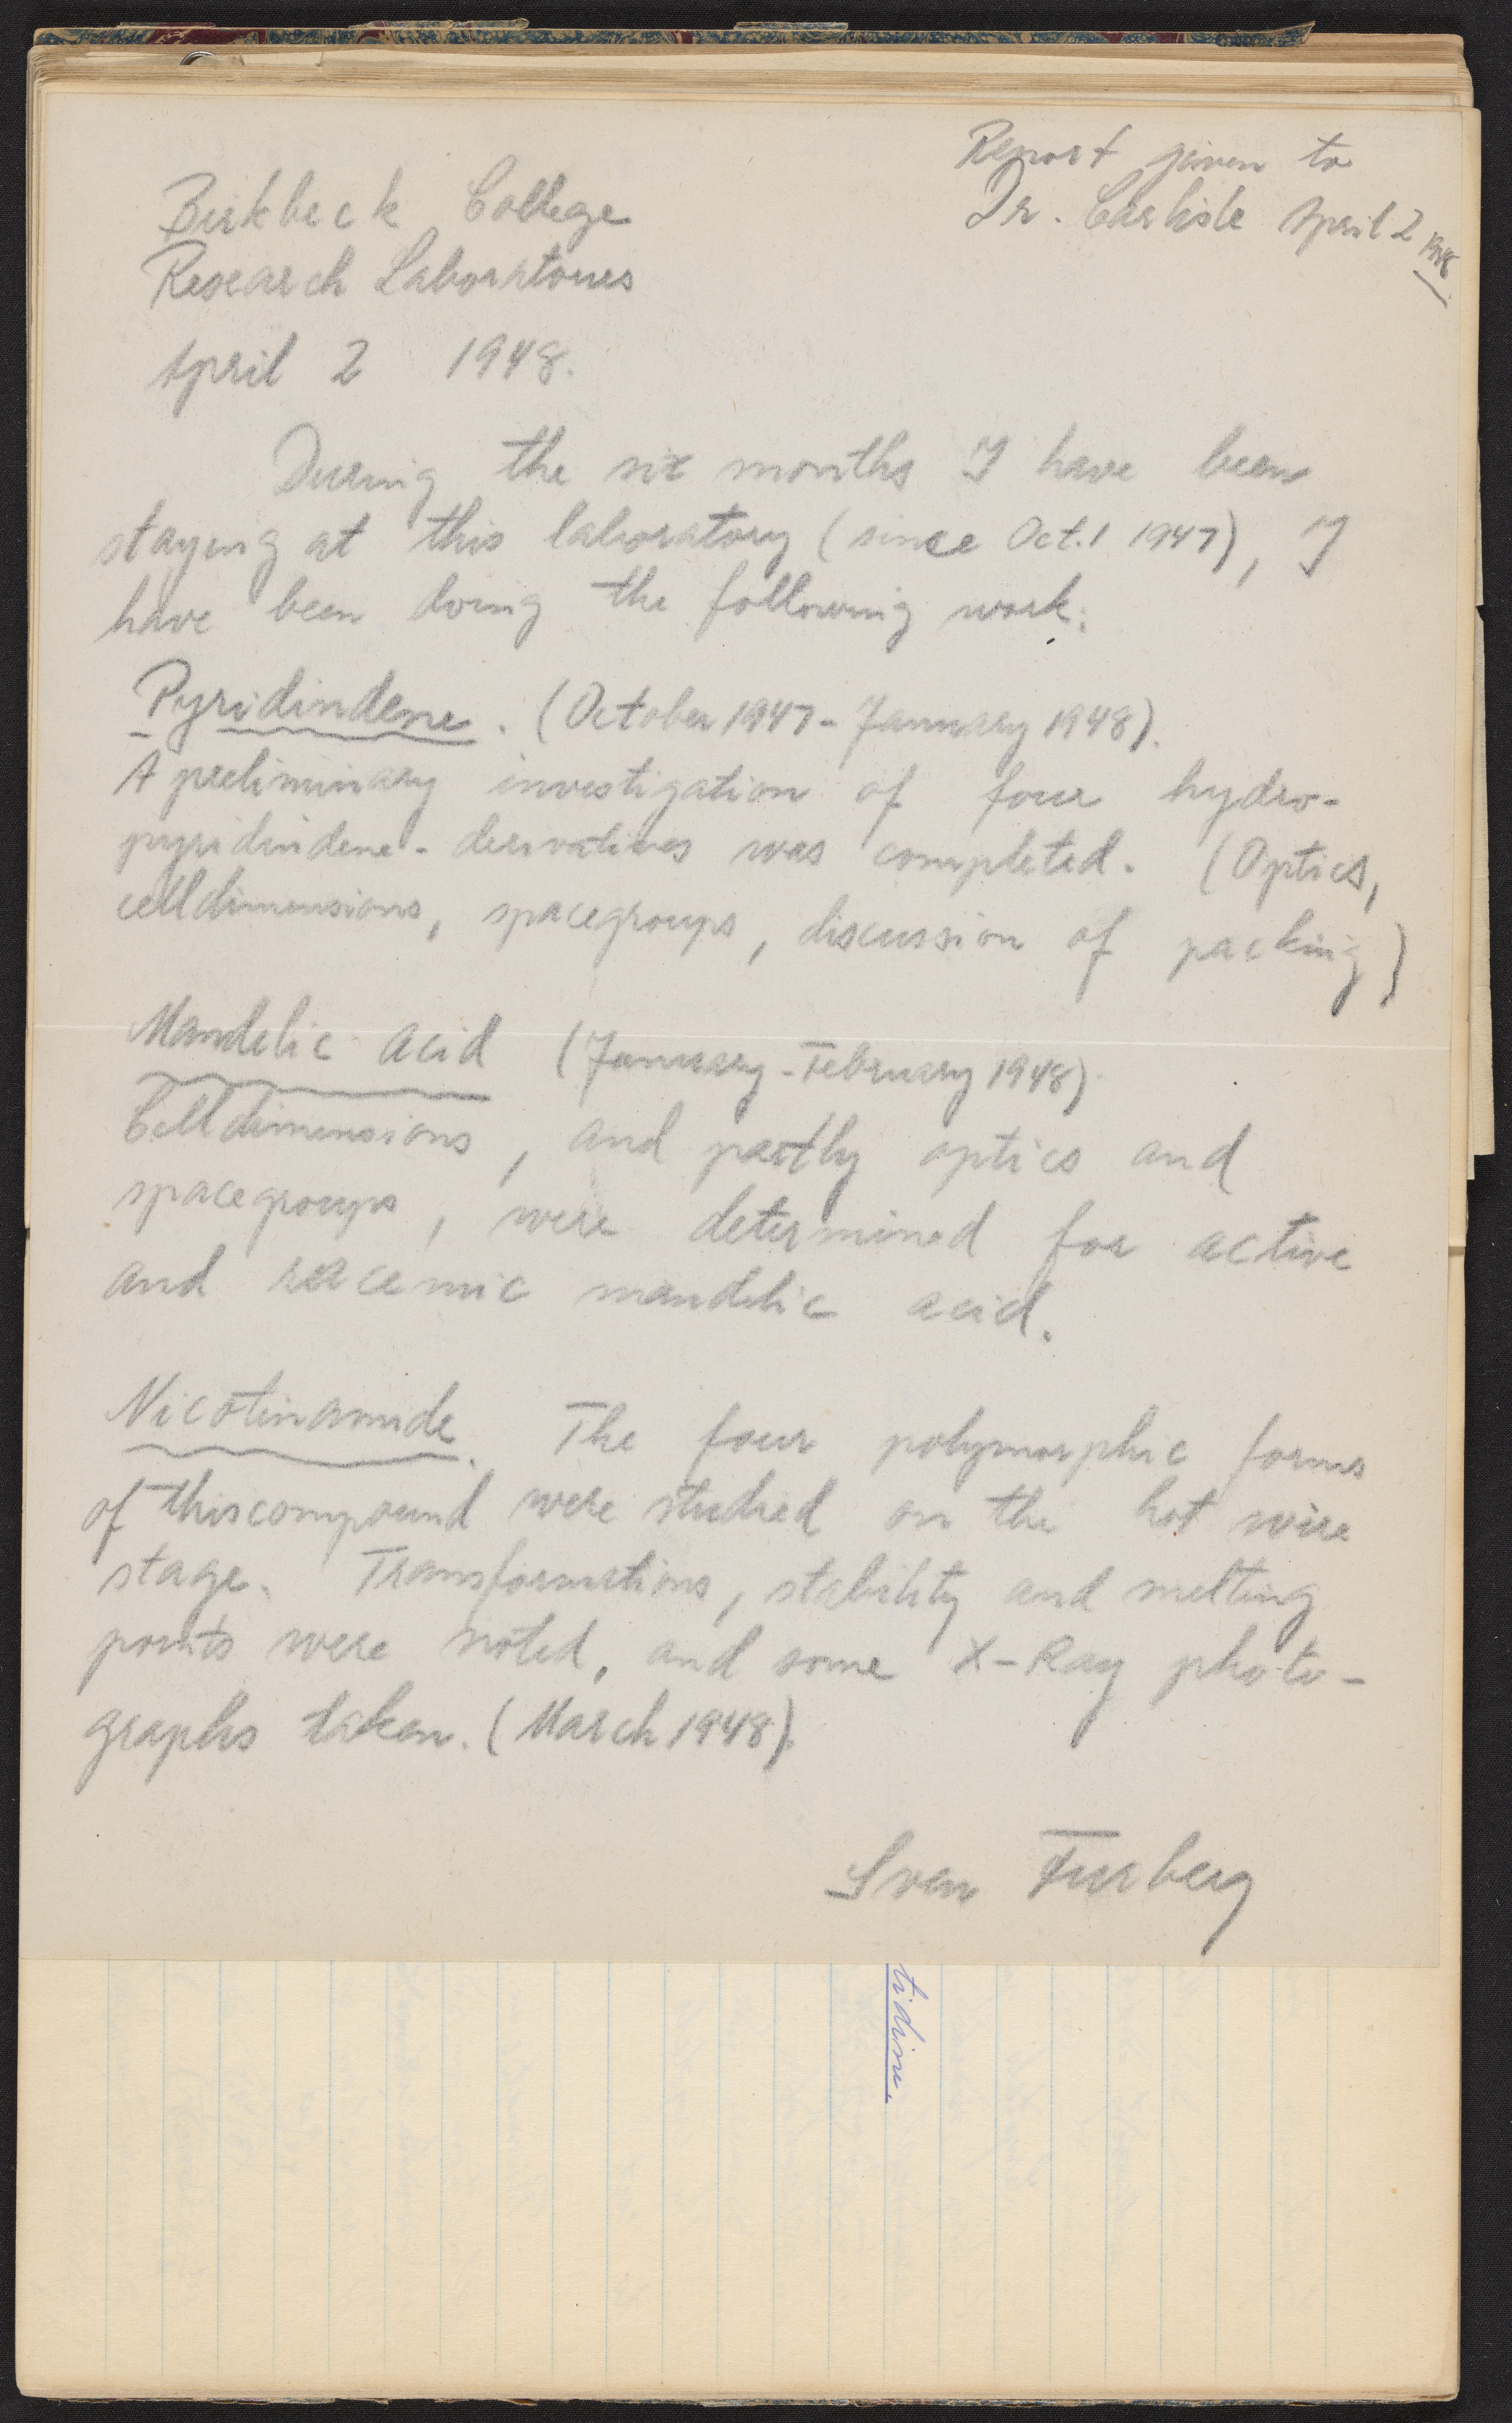 Report given to
Dr. Carlisle April 2 1948.
Birkbeck College
Research Laboratories
April 2 1948.
During the six months I have been
staying at this laboratory (since Oct. 1 1947), I
have been doing the following work:
Pyridindene. (October 1947 - January 1948).
A preliminary investigation of four hydro-
pyridindene-derivatives was completed. (Optics,
celldimensions, spacegroups, discussion of packing)
Mandelic acid (January - February 1948).
Celldimensions, and partly optics and
spacegroups, were determined for active
and racemic mandelic acid.
Nicotinamide. The four polymorphic forms
of this compound were studied on the hot wire
stage. Transformations, stability and melting
points were noted, and some X-Ray photo-
graphs taken. (March 1948).
Sven Furberg
tidine.